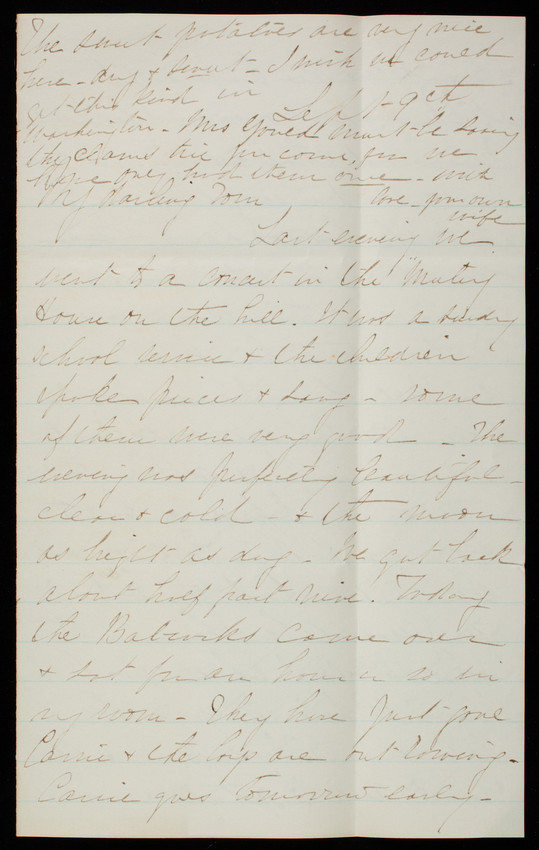 The sweet potatoes are very nice
here - dry & sweet - I wish we could
get this kind in
Sept 9th
Washington - Mrs must be saving
the clams till you come, for we
have only had them once - with
My darling Tom
love - your own
wife
Last evening we
went to a concert in the "Meeting
House on the hill. It was a Sunday
school service & the children
spoke pieces & sang - some
of them were very good - The
evening was perfectly beautiful -
clear & cold - & the moon
as bright as day - We got back
about half past nine. Today
the Babcocks came over
& sat for an hour or so in
my room - They have just gone
Carrie & the boys are out rowing -
Carrie goes tomorrow early -